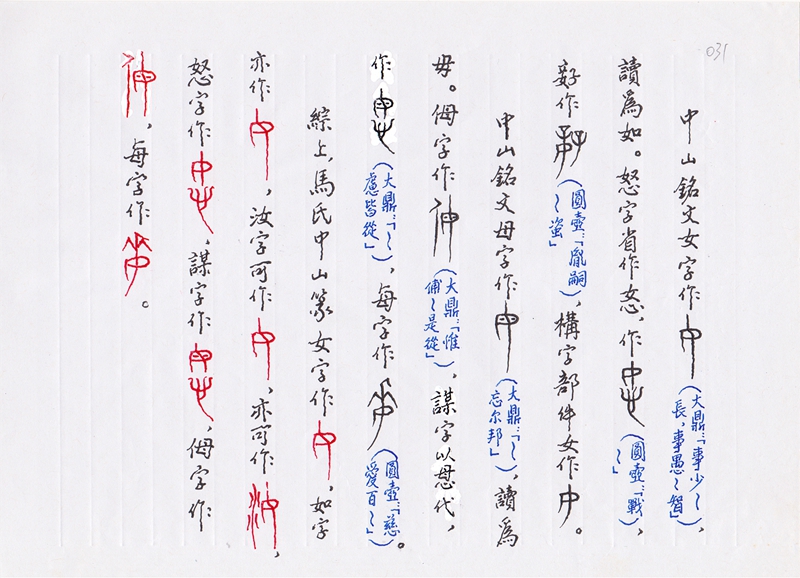 031
中山銘文女字作（大鼎：「事少～長，事愚～智」），
讀爲如。怒字省作忞，作（圓壺：「戰～」），
好作（圓壺：「胤嗣～蚉」），構字部件女作。
中山銘文母字作（大鼎：「～忘尔邦」），讀爲
毋。㑄字作（大鼎：「惟俌～是從」），謀字以𢘓代，
作（大鼎：「～慮皆從」），每字作（圓壺：「慈愛百～」）。
綜上，馬氏中山篆女字作，如字
亦作，汝字可作，亦可作，
怒字作，謀字作，㑄字作
，每字作。